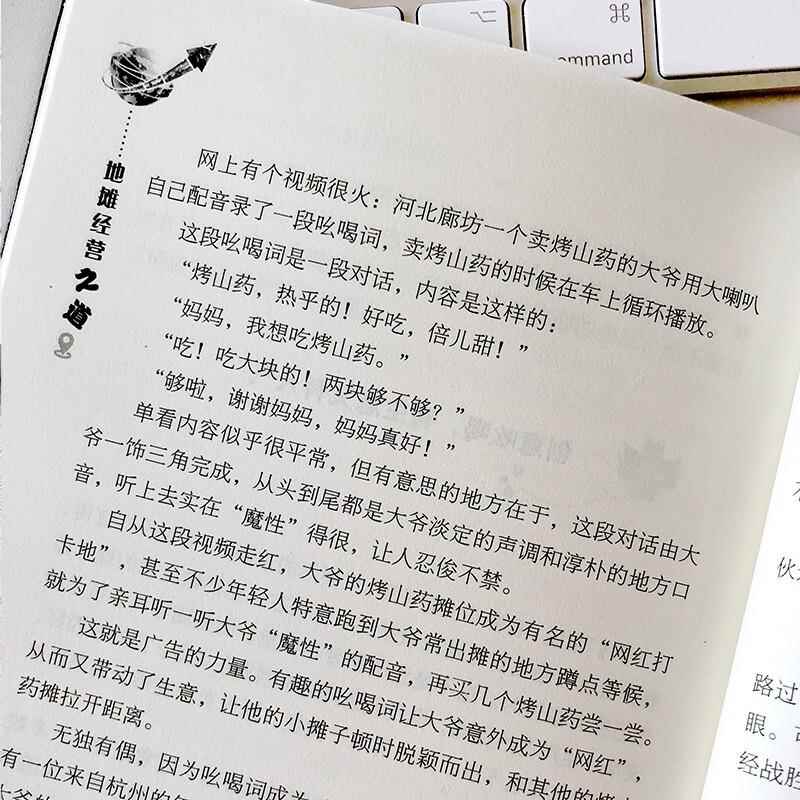 ⌘
⌥
command
地摊经营之道
网上有个视频很火：河北廊坊一个卖烤山药的大爷用大喇叭
自己配音录了一段吆喝词，卖烤山药的时候在车上循环播放。
这段吆喝词是一段对话，内容是这样的：
“烤山药，热乎的！好吃，倍儿甜！”
“妈妈，我想吃烤山药。”
“吃！吃大块的！两块够不够？”
“够啦，谢谢妈妈，妈妈真好！”
单看内容似乎很平常，但有意思的地方在于，这段对话由大
爷一饰三角完成，从头到尾都是大爷淡定的声调和淳朴的地方口
音，听上去实在“魔性”得很，让人忍俊不禁。
自从这段视频走红，大爷的烤山药摊位成为有名的“网红打
卡地”，甚至不少年轻人特意跑到大爷常出摊的地方蹲点等候，
就为了亲耳听一听大爷“魔性”的配音，再买几个烤山药尝一尝。
这就是广告的力量。有趣的吆喝词让大爷意外成为“网红”，
从而又带动了生意，让他的小摊子顿时脱颖而出，和其他的烤山
药摊拉开距离。
无独有偶，因为吆喝词成为
有一位来自杭州的
路过
眼。
经战胜